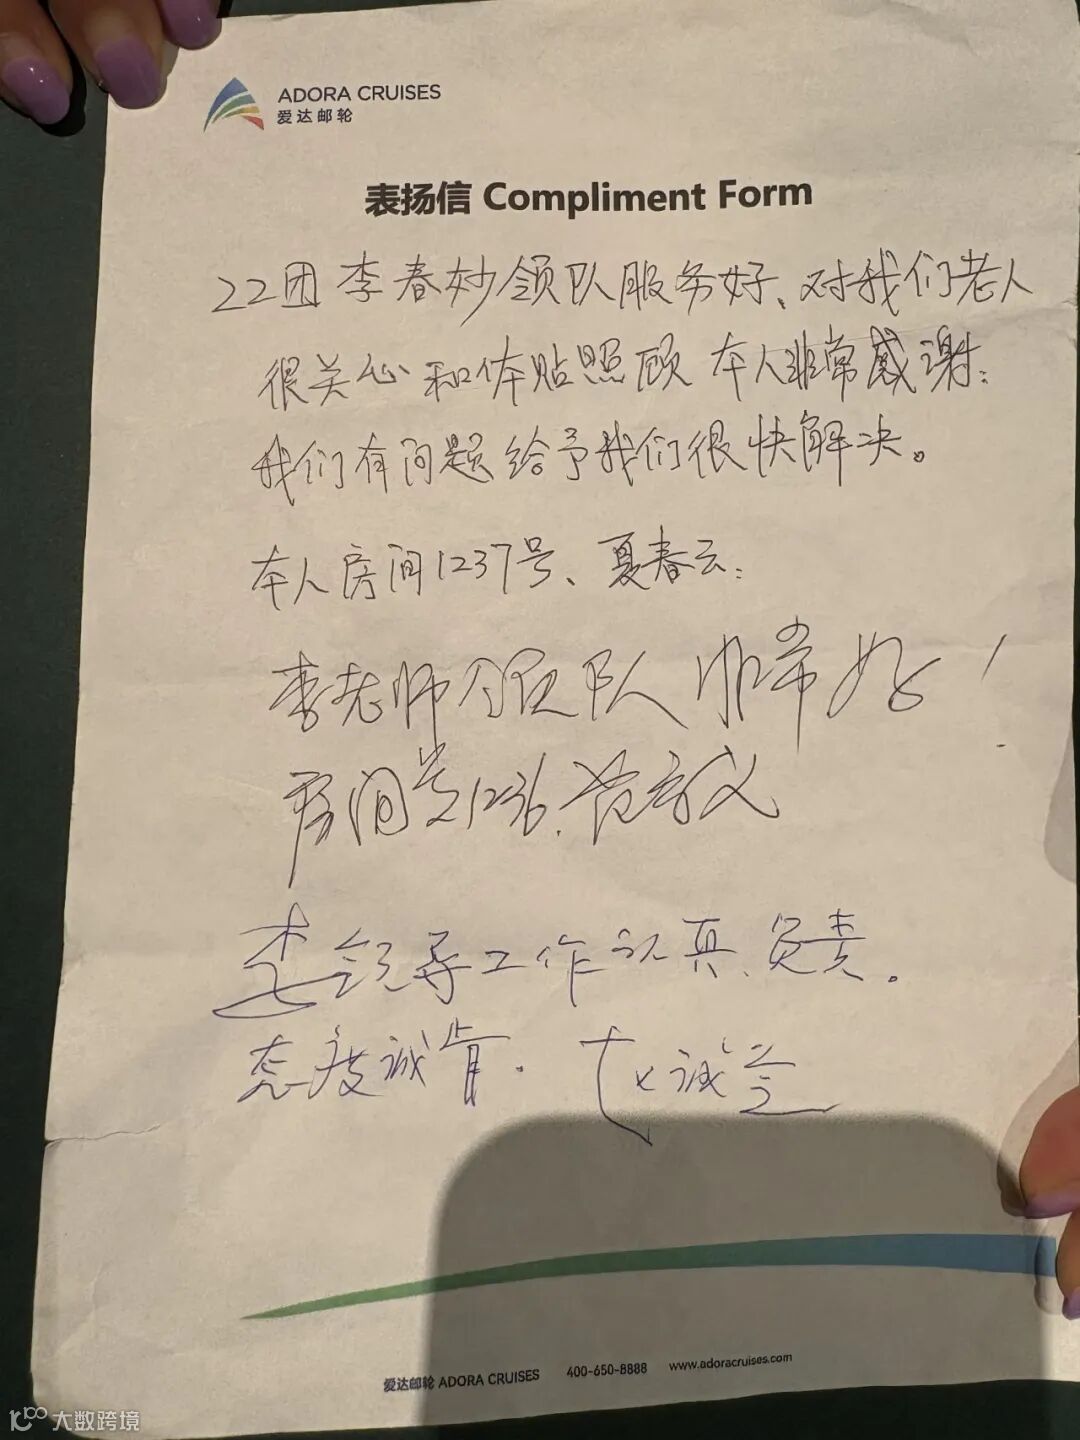 ADORA CRUISES
爱达邮轮
表扬信 Compliment Form
22团李春妙领队服务好、对我们老人
很关心和体贴照顾 本人非常感谢:
我们有问题给予我们很快解决。
本人房间1237号、夏春云:
李老师领队非常好!
房间号1236.
李领导工作认真、负责。
态度诚肯. 诚兰
爱达邮轮 ADORA CRUISES 400-650-8888 www.adoracruises.com
大数跨境